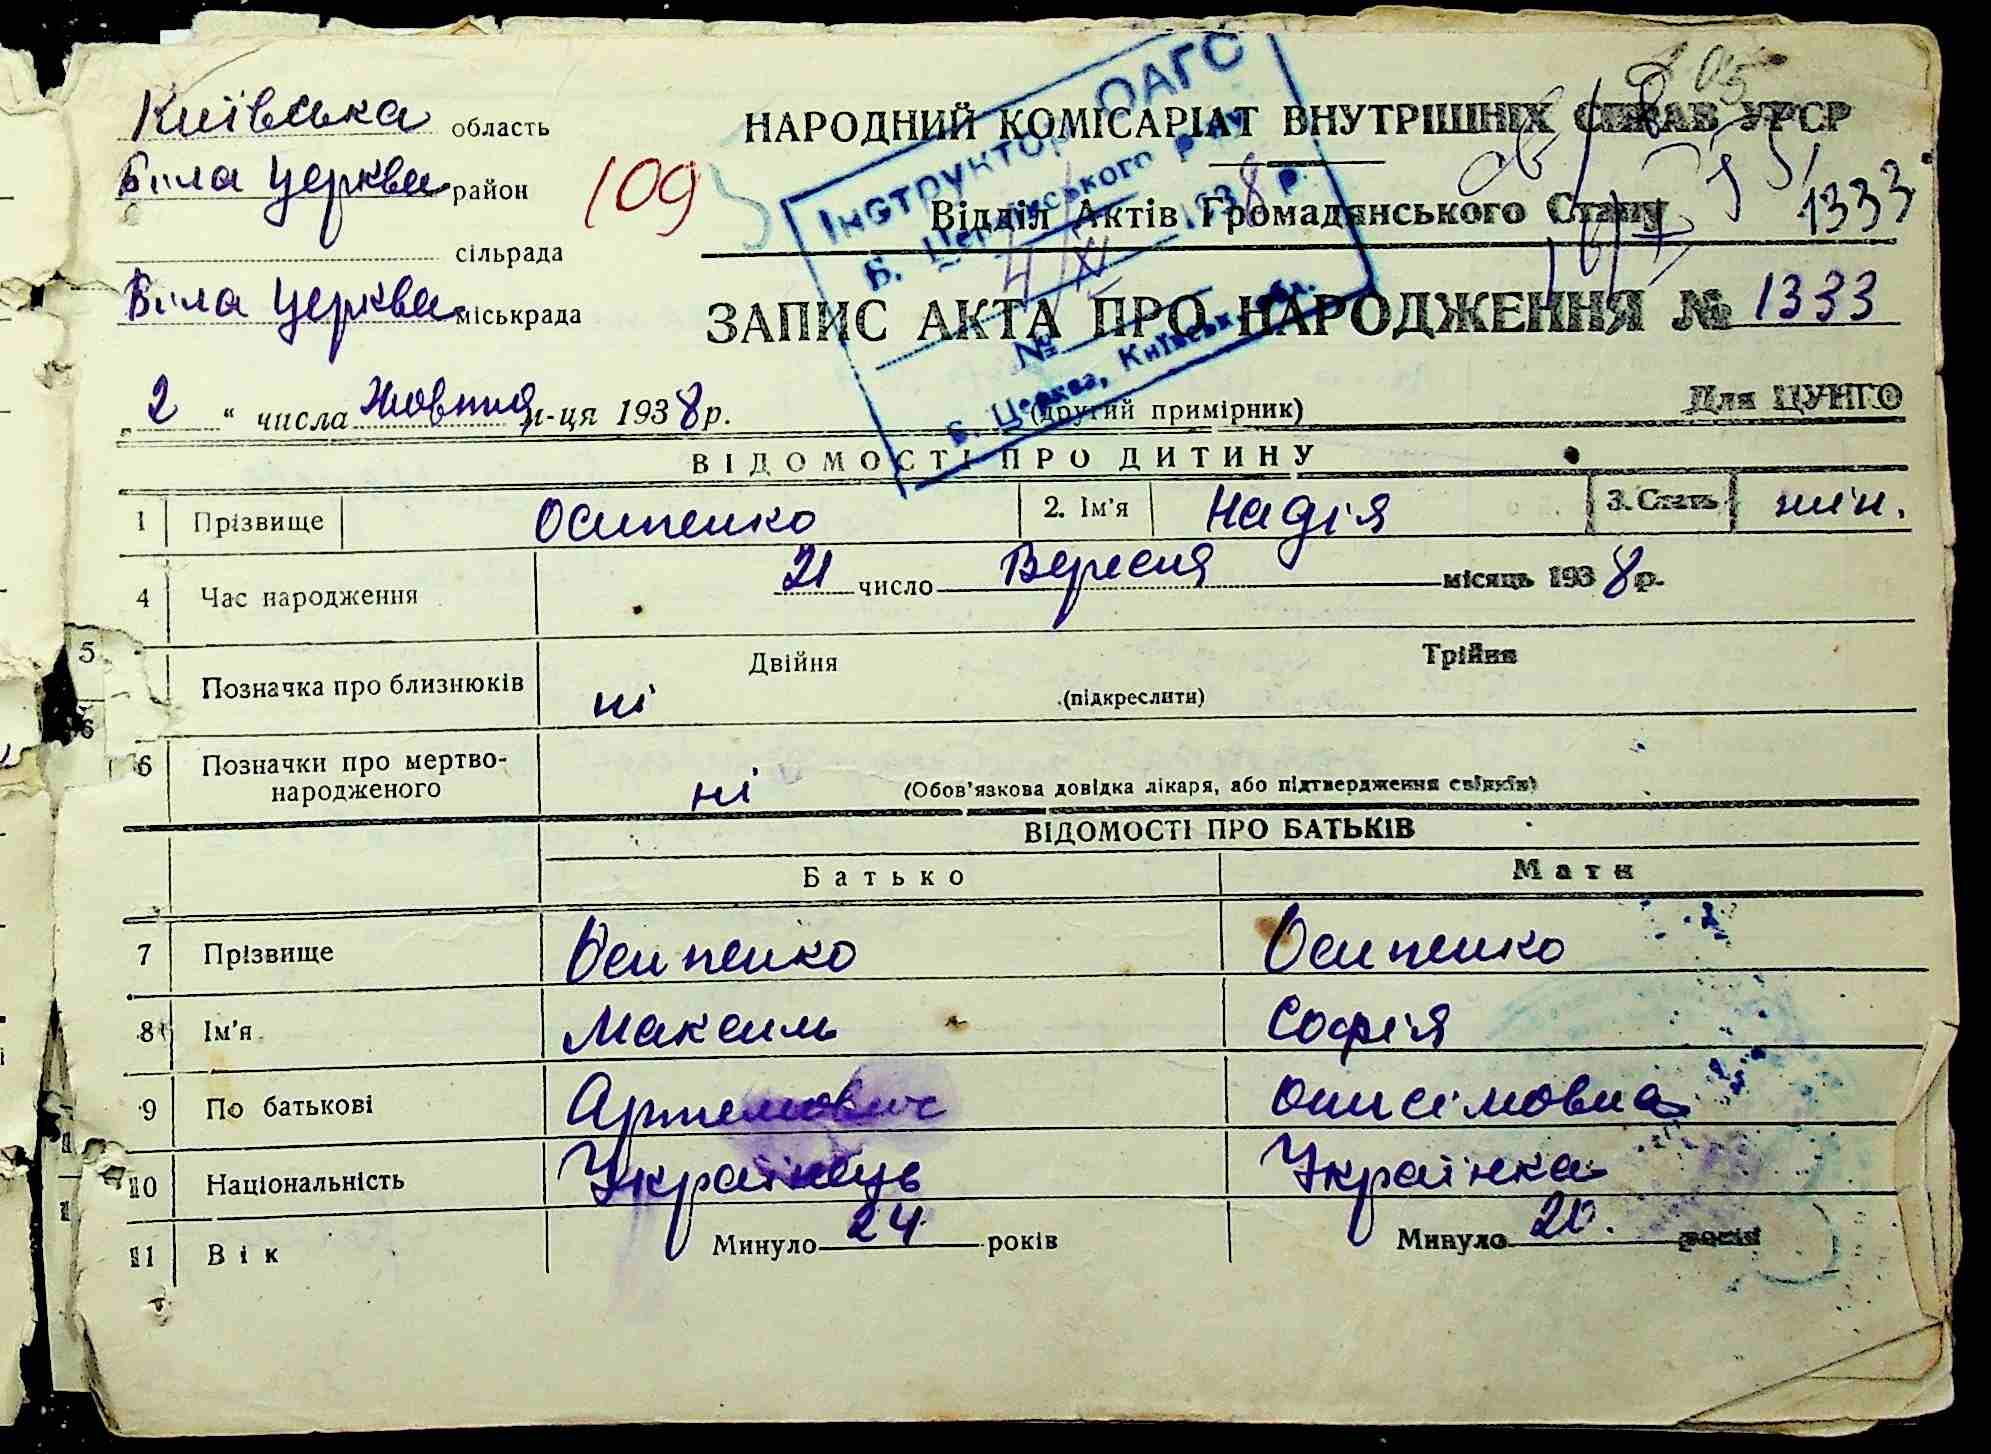 Київська область
НАРОДНИЙ КОМІСАРІАТ ВНУТРІШНІХ СПРАВ УРСР
Біла Церква район
109
Відділ Актів Громадянського Стану
1333
сільрада
Біла Церква міськрада
ЗАПИС АКТА ПРО НАРОДЖЕННЯ № 1333
Інструктор ОАГС
Б. Церквського
1938 р.
№
Б. Церква, Київськ. обл.
„2“ числа Жовтня м-ця 1938 р.
(другий примірник)
Для ЦУНГО
ВІДОМОСТІ ПРО ДИТИНУ
1 Прізвище Осипенко 2. Ім'я Надія 3. Стать жін.
4 Час народження 21 число Вересня місяць 1938 р.
5 Позначка про близнюків ні Двійня (підкреслити) Трійня
6 Позначки про мертво-
народженого ні (Обов'язкова довідка лікаря, або підтвердження свідків)
ВІДОМОСТІ ПРО БАТЬКІВ
Батько Мати
7 Прізвище Осипенко Осипенко
8 Ім'я Максим Софія
9 По батькові Артемович Онисімовна
10 Національність Українець Українка
11 Вік Минуло 24 років Минуло 20. років